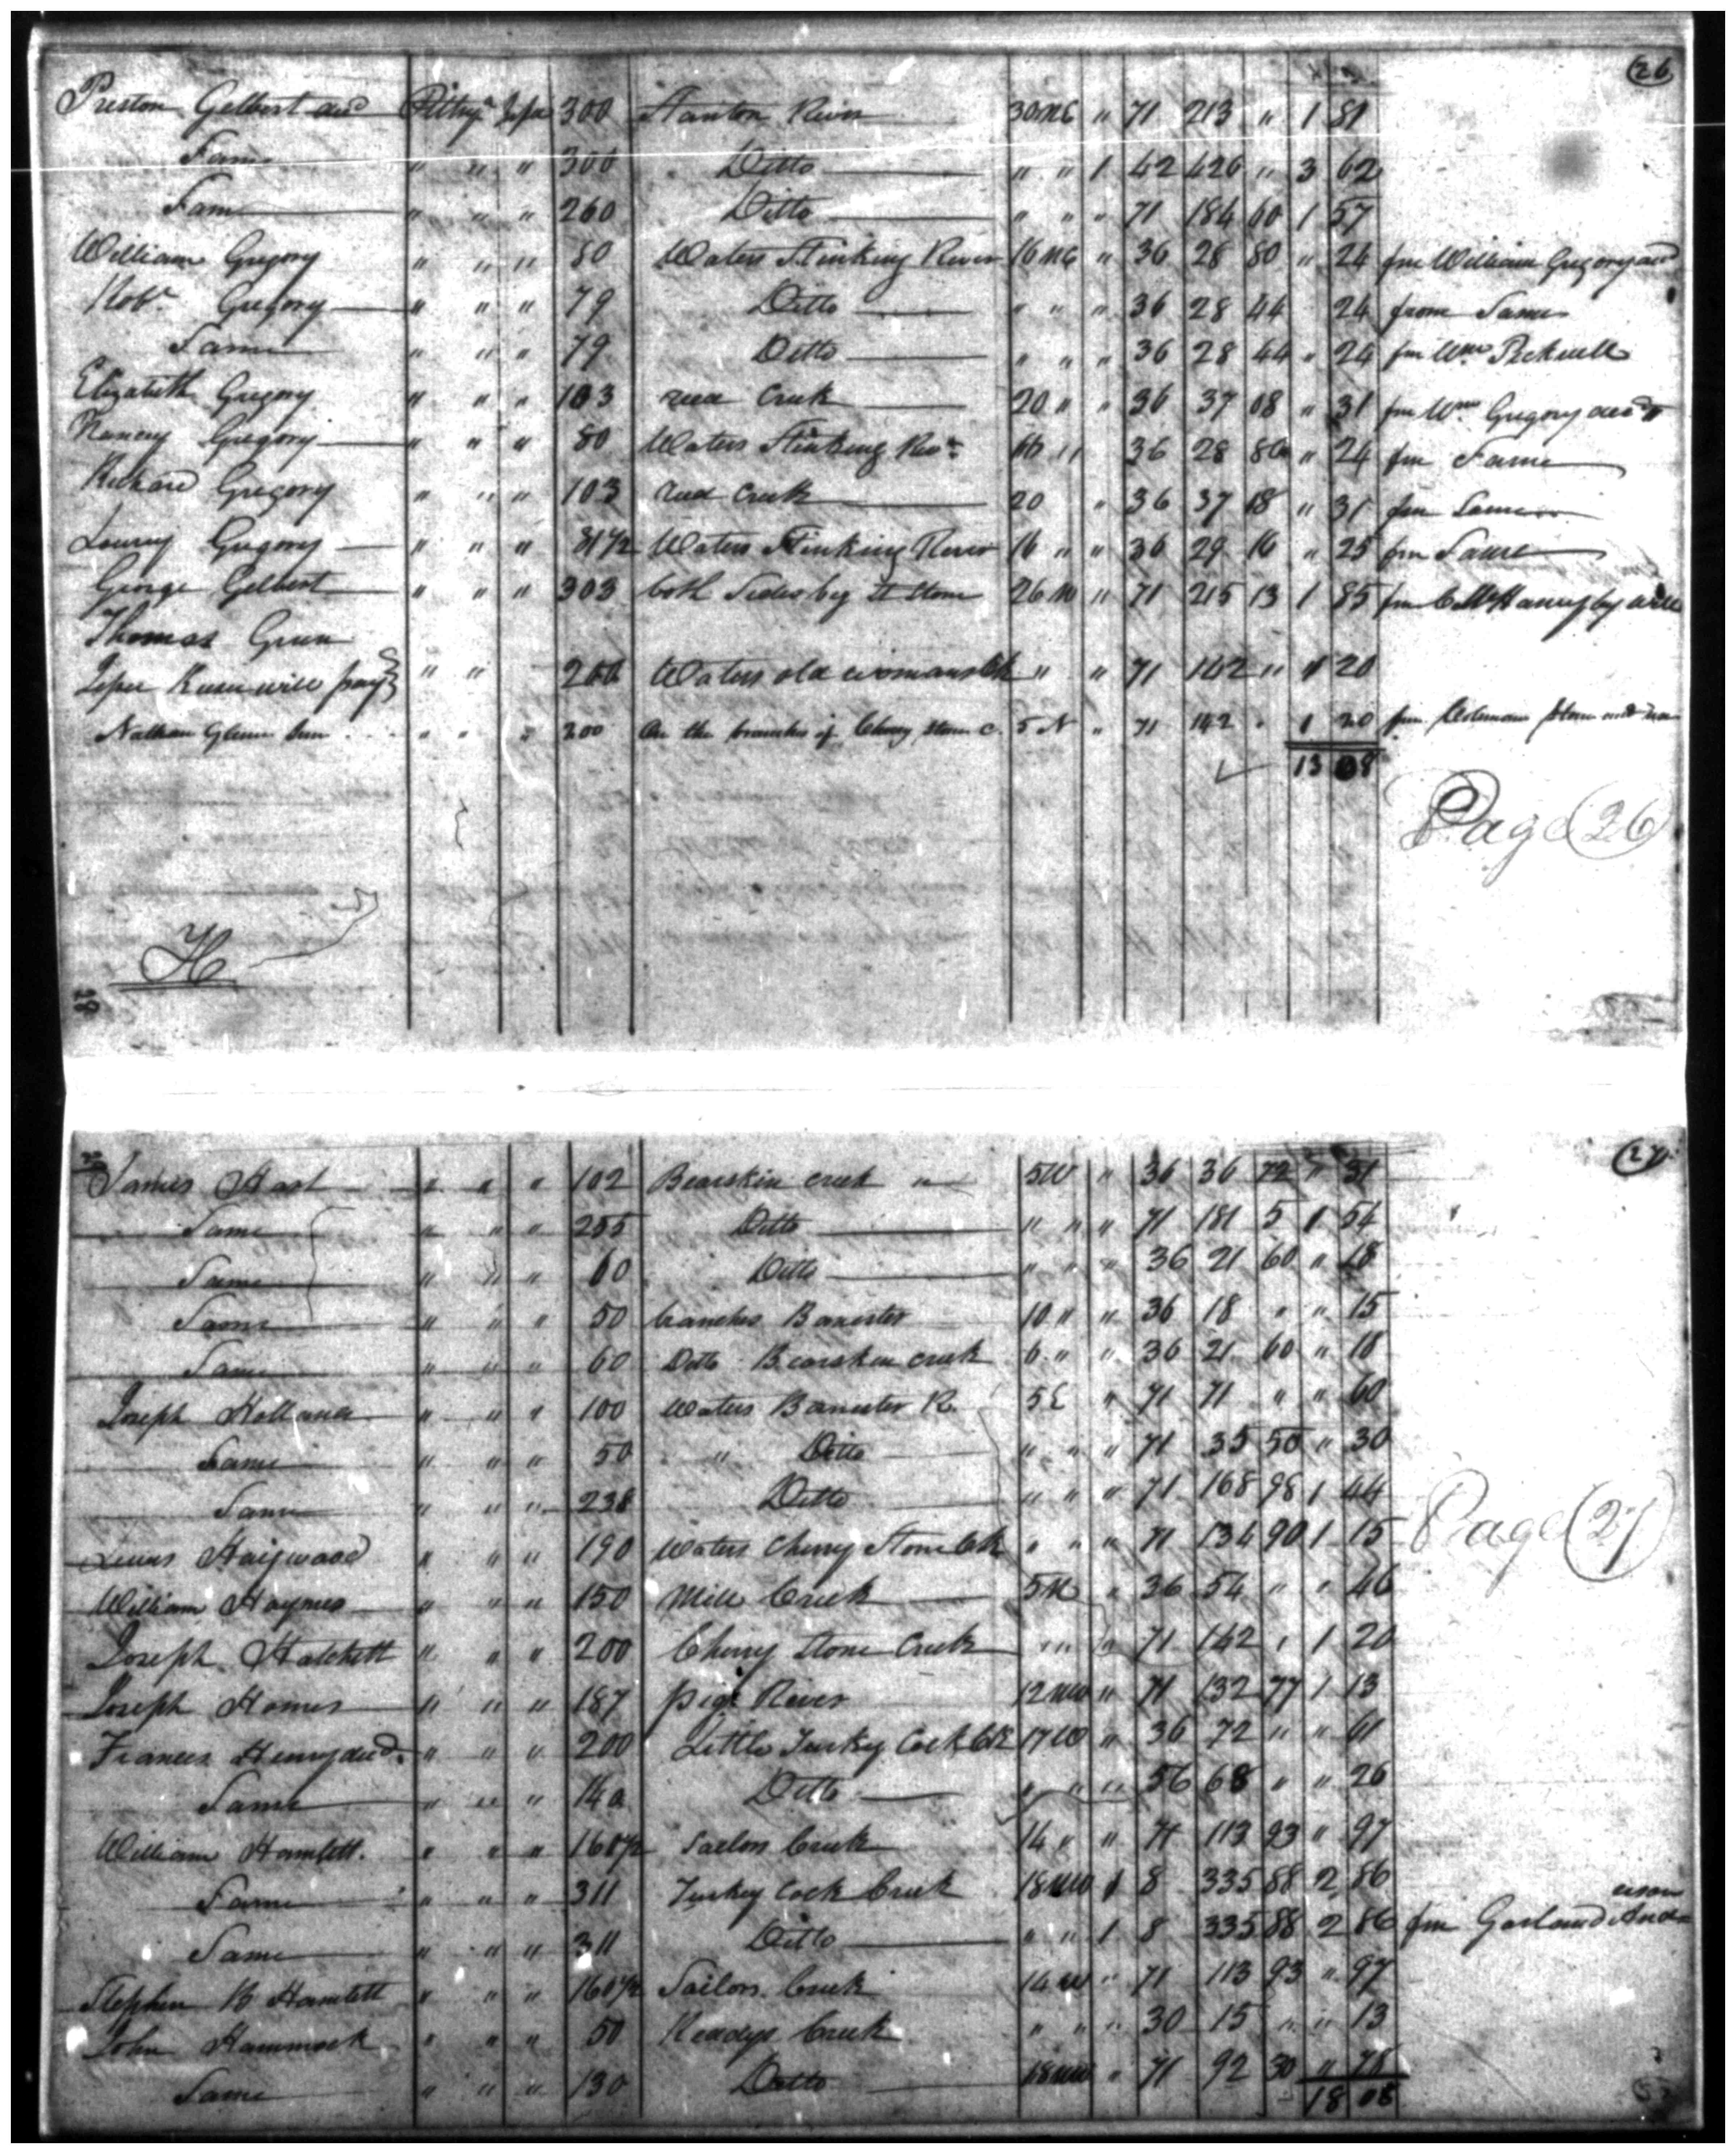 26
Preston Gelbert decd Pittsya fefra 300 Stanton River 30 NE " 71 213 " 1 81
Same " " " 300 Ditto " " 1 42 426 " 3 62
Same " " " 260 Ditto " " " 71 184 60 1 57
William Gregory " " " 80 Waters Stinking River 16 NE " 36 28 80 " 24 fm William Gregory decd
Robt Gregory " " " 79 Ditto " " " 36 28 44 24 from Same
Same " " " 79 Ditto " " " 36 28 44 " 24 fm Wm
Elizabeth Gregory " " " 103 reed Creek 20 " " 36 37 08 " 31 fm Wm Gregory decd
Nancy Gregory " " " 80 Waters Stinking Rivr 16 " 36 28 80 " 24 fm Same
Richard Gregory " " " 103 reed Creek 20 " 36 37 18 " 31 fm Same
Gregory " " " 81 1/2 Waters Stinking River 16 " " 36 29 16 " 25 fm Same
George Gelbert " " " 303 both Sides 26 N " 71 215 13 1 85 fm by will
Thomas Green
will pay " " 200 Waters old womans Ck " " 71 142 " 1 20
Nathan Glenn Sen " " " 200 On the branches of Cherry stone C. 5 N " 71 142 " 1 20 fm Coleman
13 08
Page 26
H
27
James Hart " " " 102 Bearskin creek " 5W " 36 36 72 " 31
Same " " " 255 Ditto " " " 71 181 5 1 54
Same " " " 60 Ditto " " " 36 21 60 " 18
Same " " " 50 branches Banister 10 " " 36 18 " " 15
Same " " " 60 Ditto Bearskin creek 6 " " 36 21 60 " 18
Joseph Holland " " " 100 Waters Banister R. 5E " 71 71 " " 60
Same " " " 50 " Ditto " " " 71 35 50 " 30
Same " " " 238 Ditto " " " 71 168 98 1 44
Lewis Haigwood " " " 190 Waters Cherry Stone Ck " " " 71 134 90 1 15
Page 27
William Haynes " " " 150 Mill Creek 5N " 36 54 " " 46
Joseph Hatchett " " " 200 Cherry Stone Creek " " 71 142 " 1 20
Joseph Homes " " " 187 pigg River 12 NW " 71 132 77 1 13
Frances Henry decd. " " " 200 Little Turkey Cock Ck 17 W " 36 72 " " 61
Same " " " 140 Ditto " " " 56 68 " " 26
William Hamlett. " " " 160 1/2 Sailors Creek 14 " " 71 113 93 " 97
Same " " " 311 Turkey Cock Creek 18 NW 1 8 335 88 2 86
Same " " " 311 Ditto " " 1 8 335 88 2 86 fm Garland Anderson
Stephen B Hamlett " " " 160 1/2 Sailors Creek 14 W " 71 113 93 " 97
John Hammock " " " 50 Readys Creek " " " 30 15 " " 13
Same " " " 130 Ditto 18 NW " 71 92 30 " 78
18 08